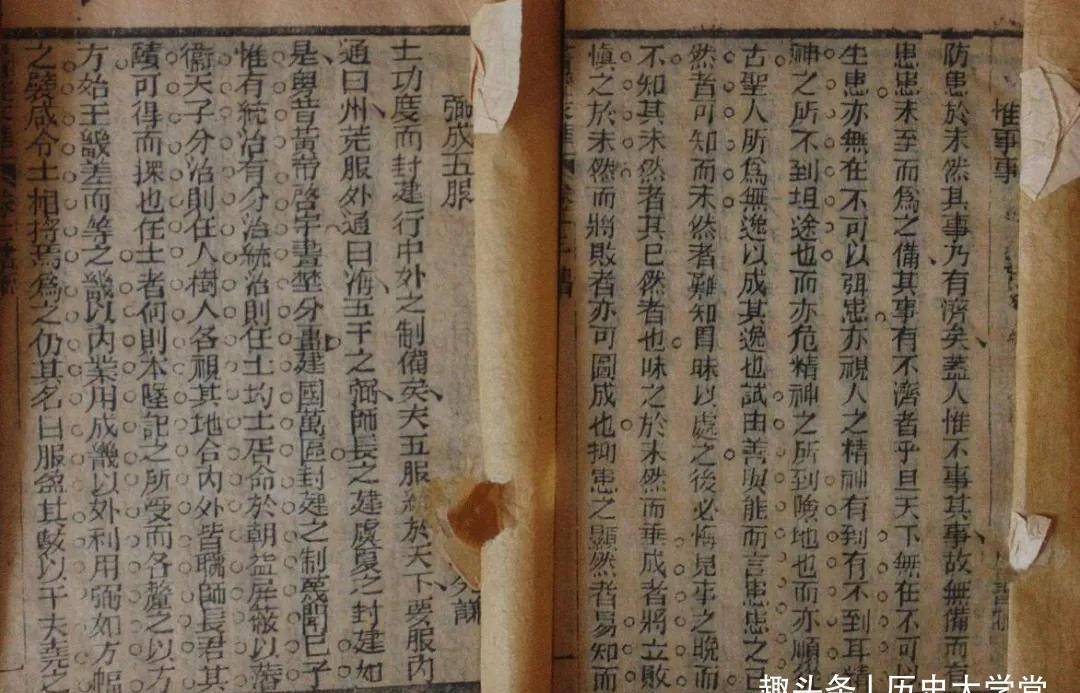 惟事事
防患於未然其事乃有濟矣蓋人惟不事其事故無備而有
患患未至而爲之備其事有不濟者乎且天下無在不可以
生患亦無在不可以弭患亦視人之精神有到有不到耳精
神之所不到坦途也而亦危精神之所到險地也而亦順
古聖人所爲無逸以成其逸也試由善與能而言患患之已
然者可知而未然者難知冒昧以處之後必悔見事之晩而
不知其未然者其已然者也昧之於未然而垂成者將立敗
愼之於未然而將敗者亦可圖成也抑患之顯然者易知而
弼成五服
土功度而封建行中外之制備矣夫五服統於天下要服内
通曰州荒服外通曰海五千之弼師長之建虞夏之封建如
是粤昔黄帝啓宇畫埜分畺建國萬區封建之制蔑聞已子
惟有統治有分治統治則任土均土居命於朝 屏蔽以藩
衞天子分治則任人樹人各視其地合内外皆職師長君其
賾可得而探也在土者何則本墜記之所受而各釐之以方
方始王畿差而等之畿以内業用成畿以外利用弼如方幅
之襞 令土相 爲之仍其名曰服盈 以千夫堯之
趣头条 | 历史大学堂